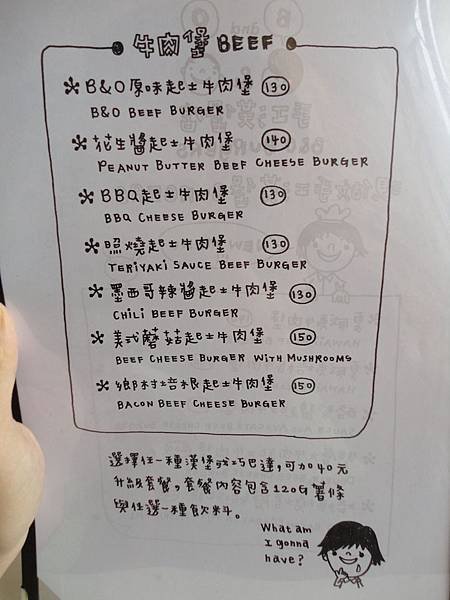 牛肉堡 BEEF
* B&O原味起士牛肉堡 130
B&O BEEF BURGER
* 花生醬起士牛肉堡 140
PEANUT BUTTER BEEF CHEESE BURGER
* BBQ起士牛肉堡 130
BBQ CHEESE BURGER
* 照燒起士牛肉堡 130
TERIYAKI SAUCE BEEF BURGER
* 墨西哥辣醬起士牛肉堡 130
CHILI BEEF BURGER
* 美式蘑菇起士牛肉堡 150
BEEF CHEESE BURGER WITH MUSHROOMS
* 鄉村培根起士牛肉堡 150
BACON BEEF CHEESE BURGER
選擇任一種漢堡或巧巴達,可加40元
升級套餐。套餐內容包含120G薯條
與任選一種飲料。
What am
I gonna
have?